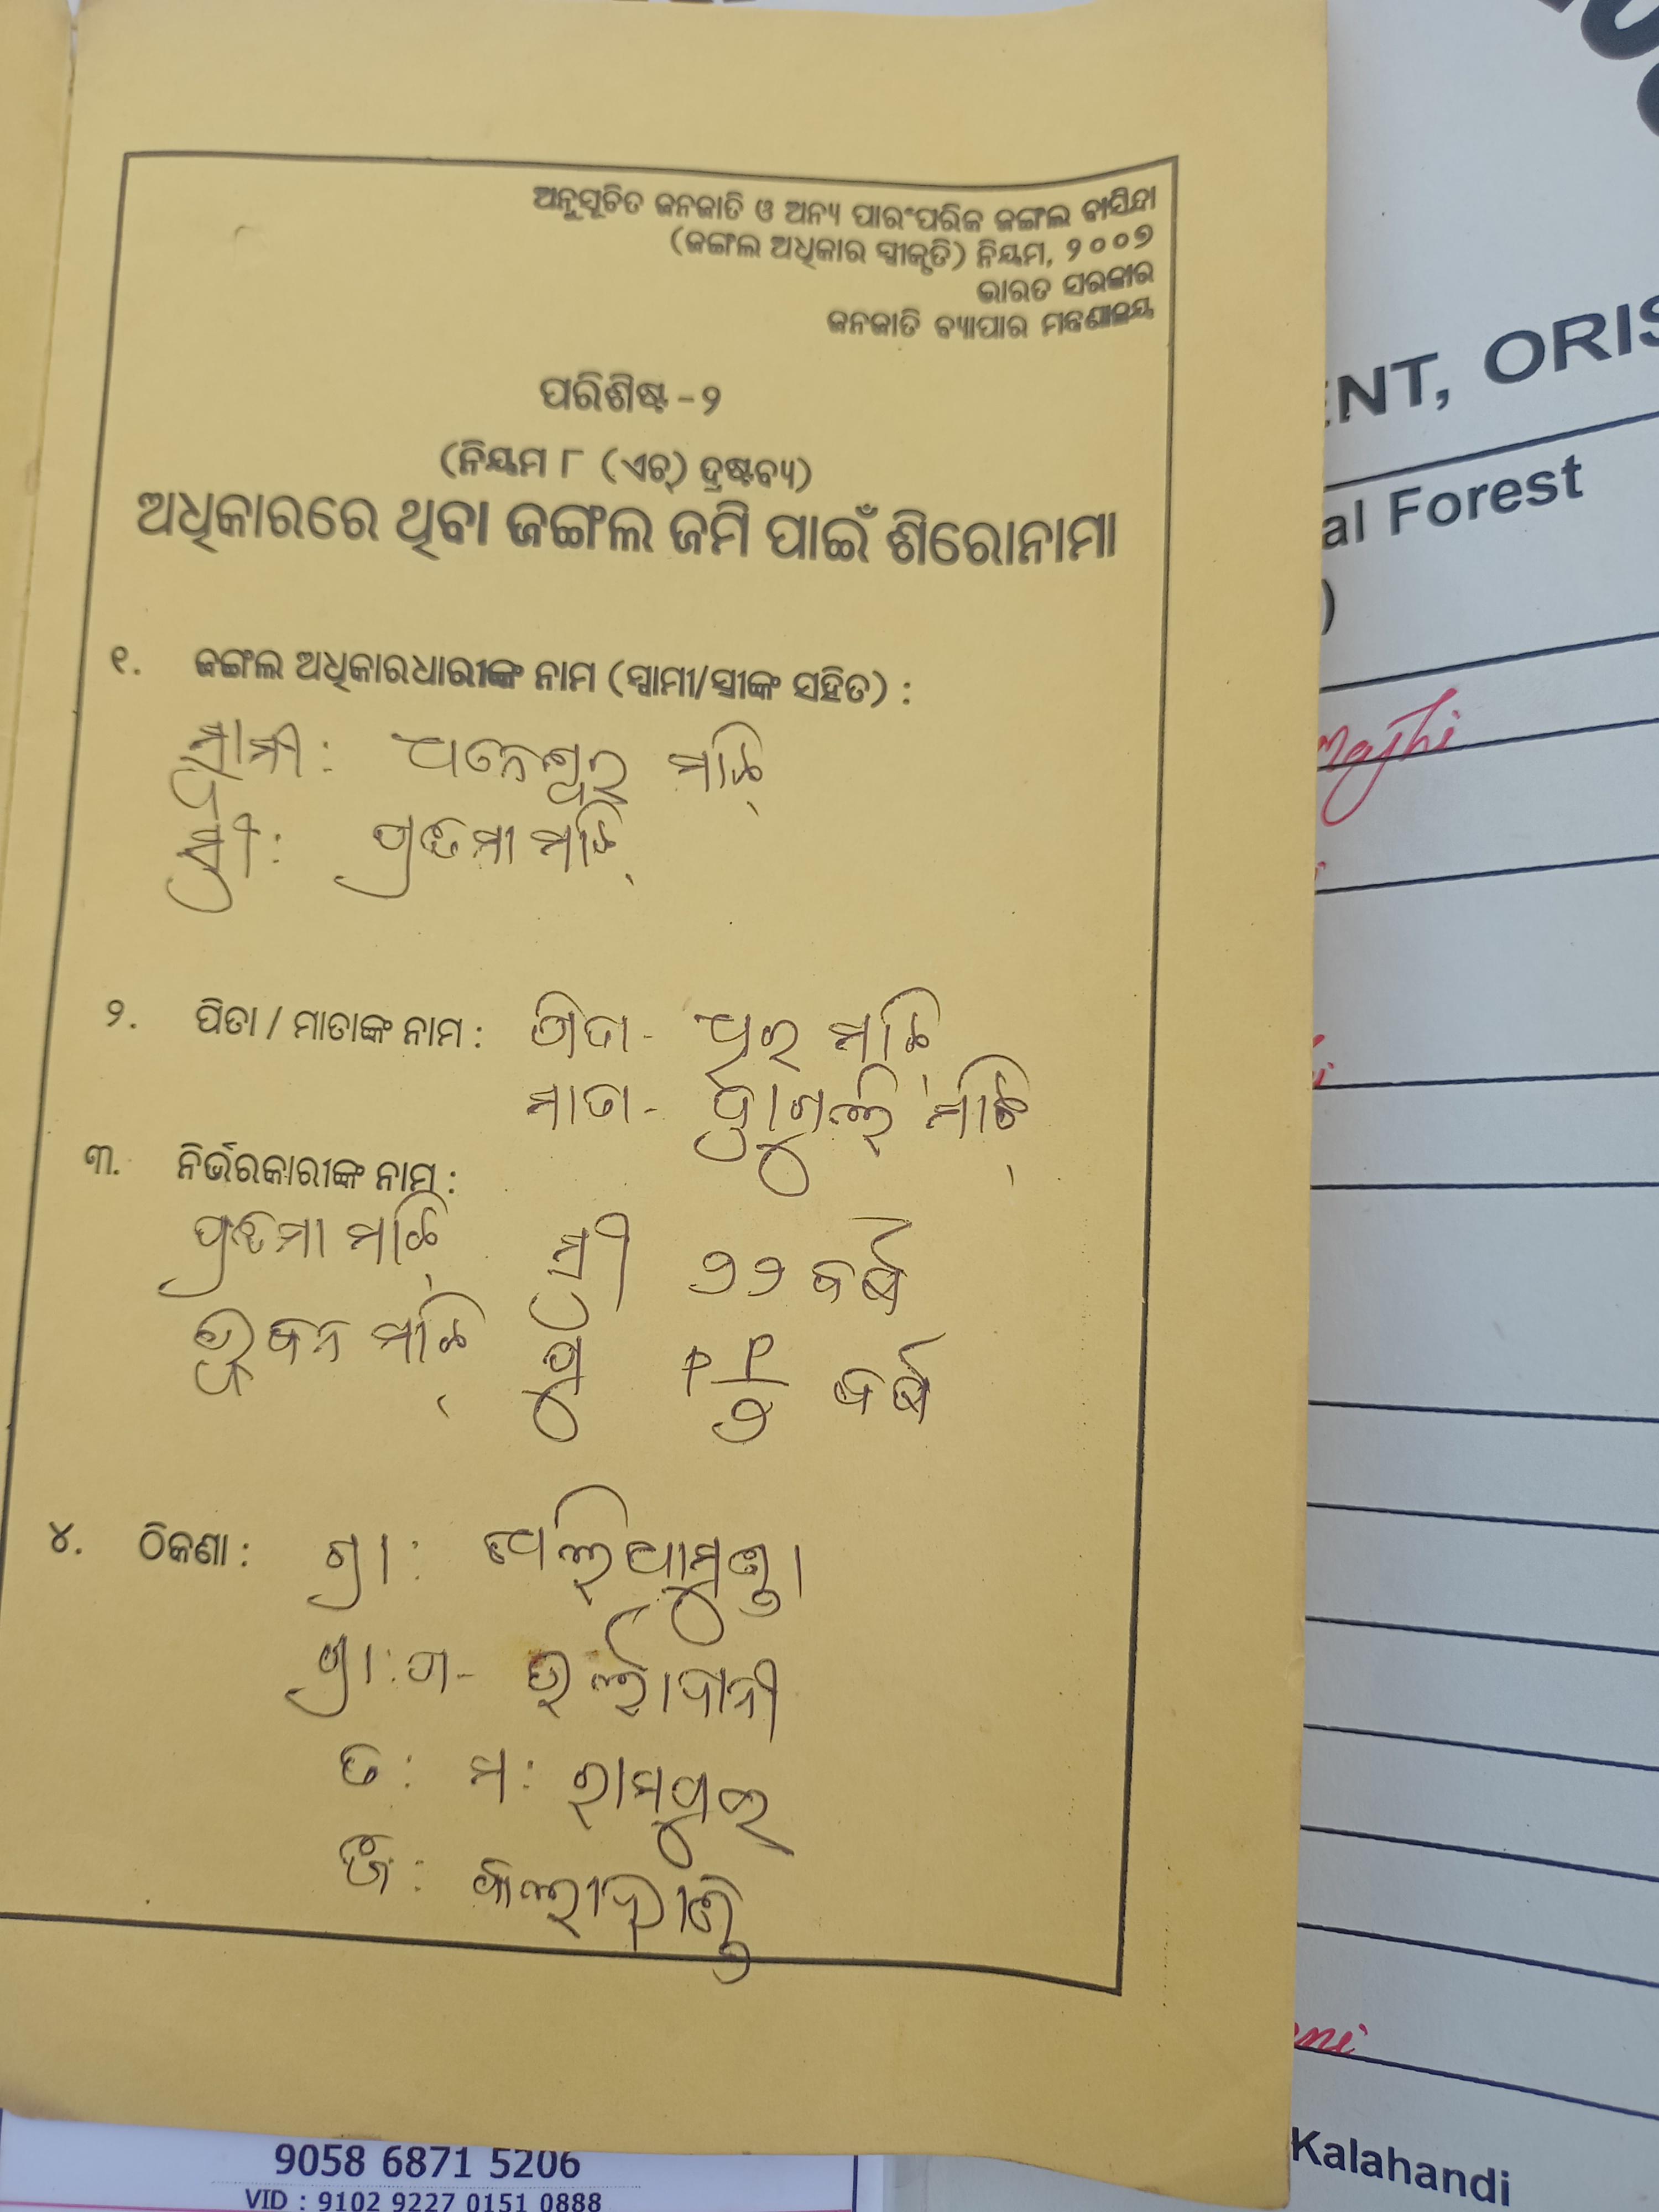 ଅନୁସୂଚିତ ଜନଜାତି ଓ ଅନ୍ୟ ପାରଂପରିକ ଜଙ୍ଗଲ ବାସିନ୍ଦା
(ଜଙ୍ଗଲ ଅଧିକାର ସ୍ୱୀକୃତି) ନିୟମ, ୨୦୦୭
ଭାରତ ସରକାର
ଜନଜାତି ବ୍ୟାପାର ମନ୍ତ୍ରଣାଳୟ
ପରିଶିଷ୍ଟ - ୨
(ନିୟମ ୮ (ଏଚ୍) ଦ୍ରଷ୍ଟବ୍ୟ)
ଅଧିକାରରେ ଥିବା ଜଙ୍ଗଲ ଜମି ପାଇଁ ଶିରୋନାମା
୧. ଜଙ୍ଗଲ ଅଧିକାରଧାରୀଙ୍କ ନାମ (ସ୍ୱାମୀ/ସ୍ତ୍ରୀଙ୍କ ସହିତ) :
ସ୍ୱାମୀ : ଧନେଶ୍ୱର ମାଝି
ସ୍ତ୍ରୀ : ପ୍ରତିମା ମାଝି
୨. ପିତା / ମାତାଙ୍କ ନାମ : ପିତା - ଧୂର ମାଝି
ମାତା - ମାଝି
୩. ନିର୍ଭରକାରୀଙ୍କ ନାମ :
ପ୍ରତିମା ମାଝି ସ୍ତ୍ରୀ ୨୨ ବର୍ଷ
ଭୁବନ ମାଝି ପୁ ୧ ୧/୨ ବର୍ଷ
୪. ଠିକଣା :
ଗ୍ରା :
ଗ୍ରା : ପ -
ତ : ମ : ରାମପୁର
ଜି : କଳାହାଣ୍ଡି
ENT, ORIS
al Forest
)
majhi
Kalahandi
9058 6871 5206
VID : 9102 9227 0151 0888